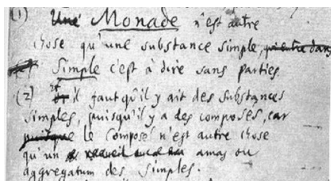 (1) Une Monade n'est autre
chose qu'une substance simple, qui entre dans
Simple c'est à dire sans parties
(2) il faut qu'il y ait des substances
simples, puisqu'il y a des composés, car
le composé n'est autre chose
qu'un amas ou
aggregatum des simples.